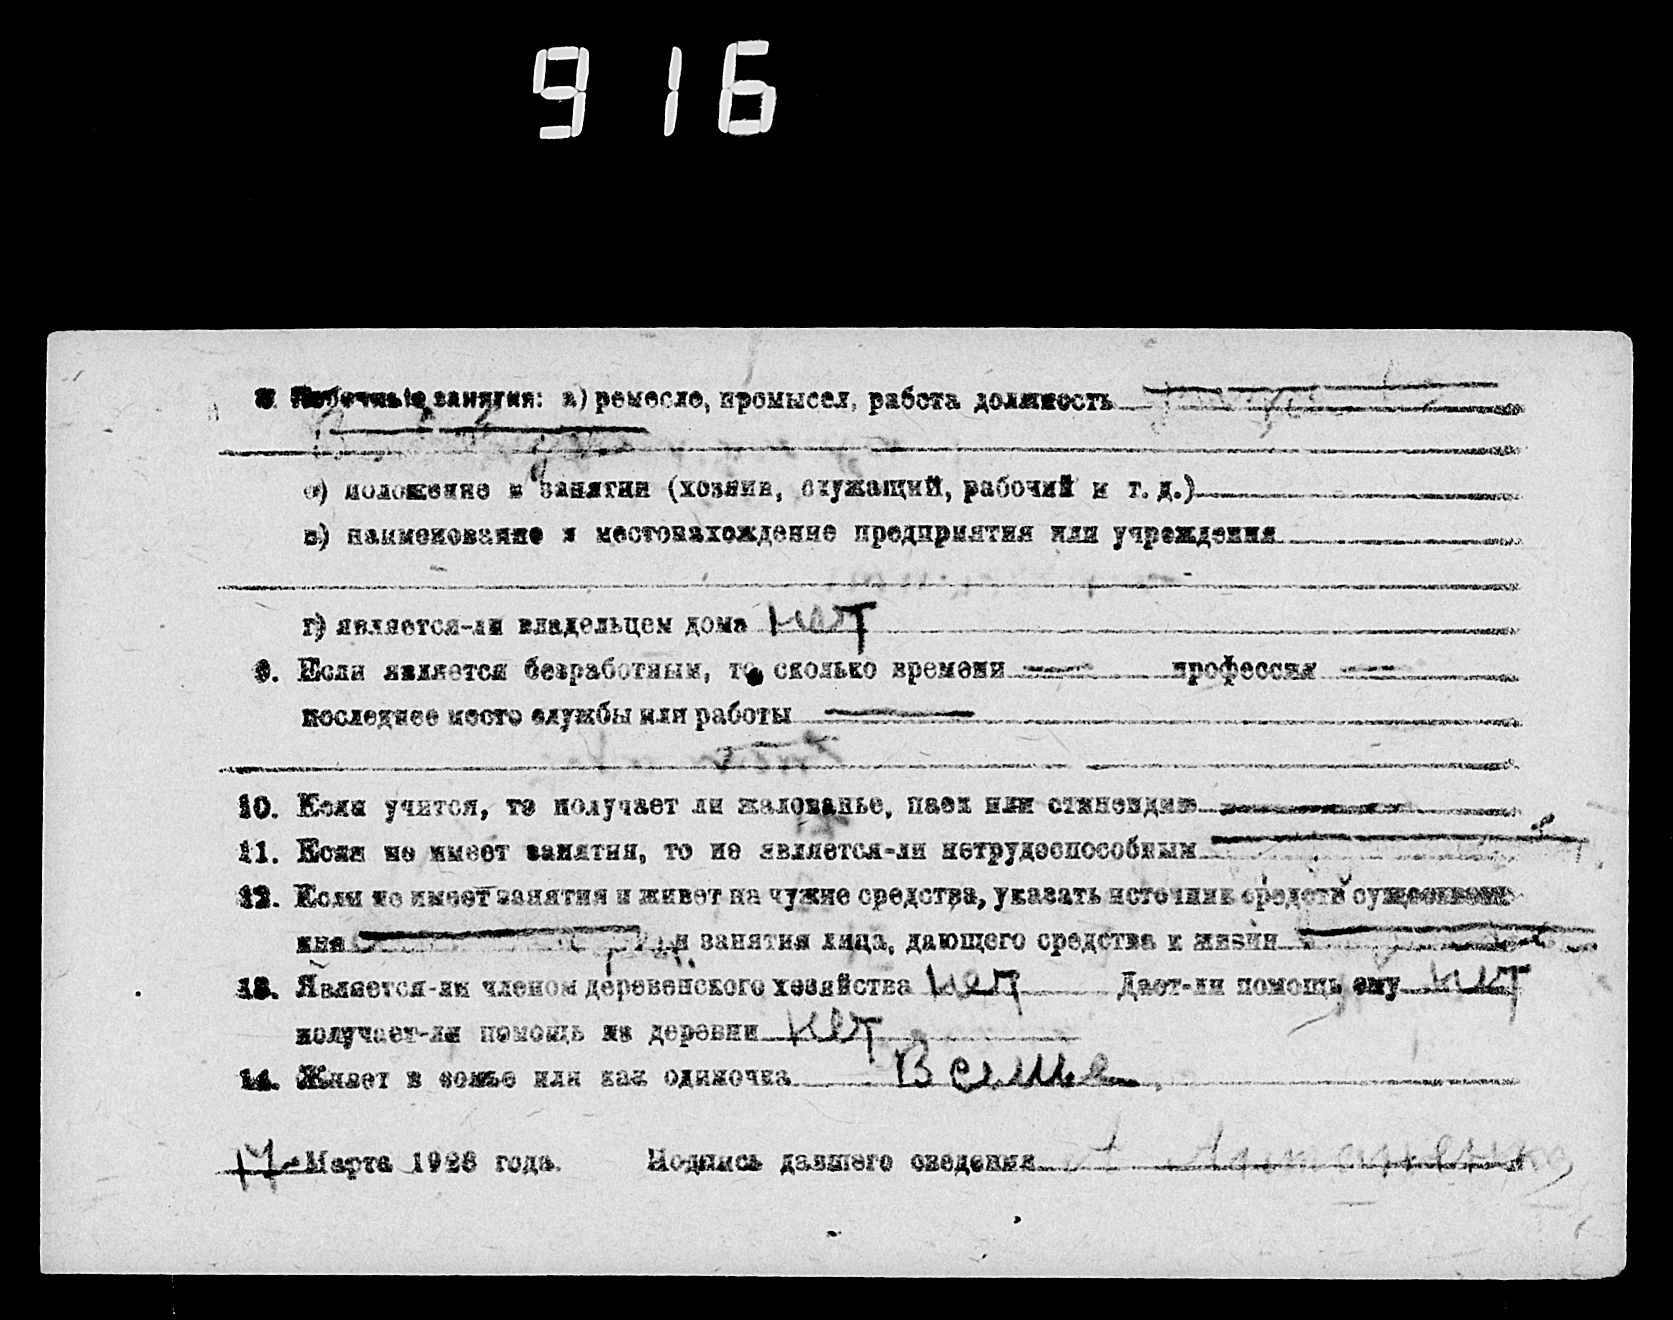 916
8. Побочные занятия: а) ремесло, промысел, работа должность
б) положение в занятии (хозяин, служащий, рабочий и т. д.)
в) наименование и местонахождение предприятия или учреждения
г) является-ли владельцем дома нет
9. Если является безработным, то сколько времени — профессия —
последнее место службы или работы —
10. Если учится, то получает ли жалованье, паек или стипендию —
11. Если не имеет занятия, то не является-ли нетрудоспособным —
12. Если не имеет занятия и живет на чужие средства, указать источник средств существова-
ния — и занятия лица, дающего средства к жизни —
13. Является-ли членом деревенского хозяйства нет Дает-ли помощь ему нет
получает-ли помощь из деревни нет
14. Живет в семье или как одиночка В семье
17 Марта 1923 года. Подпись давшего сведения А